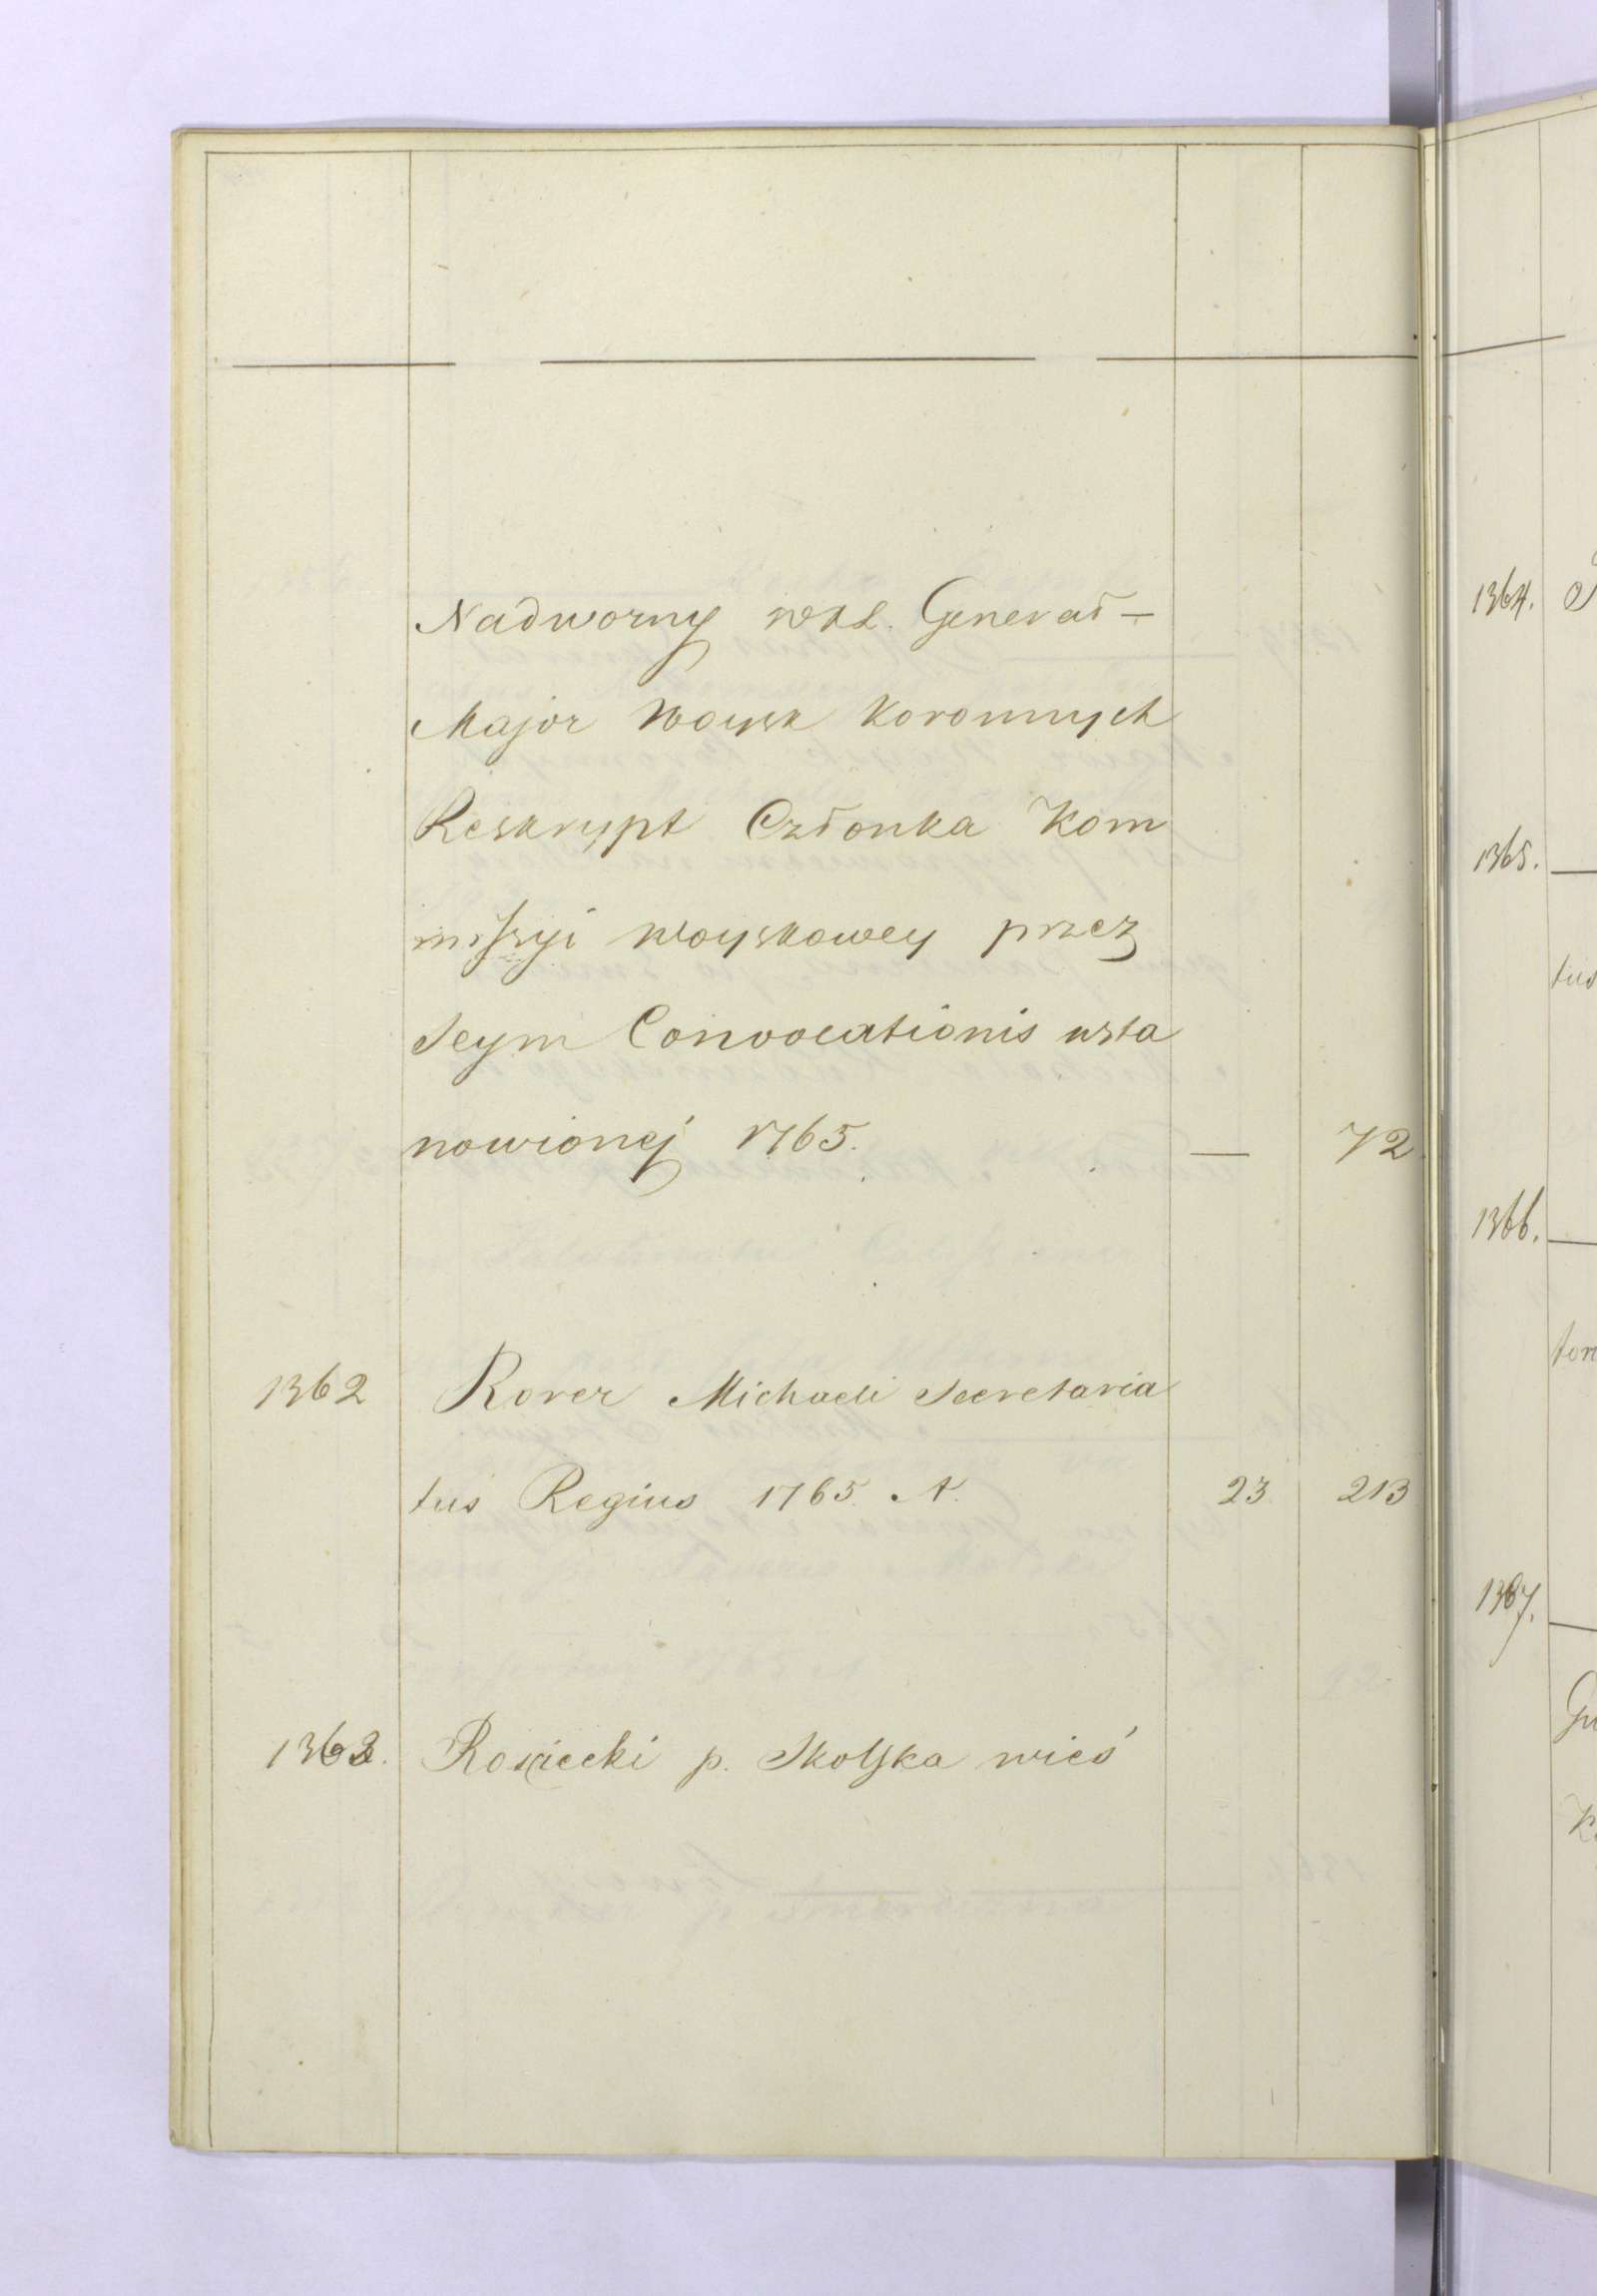 Nadworny WXL. Generał-
Major Woysk Koronnych
Reskrypt Członka Kom
missyi Woyskowey przez
Seym Convocationis usta
nowionej 1765. — 72
1362 Rover Michaeli Secretaria
tus Regius 1765. N. 23 213
1363. Rosciecki p. Skolska wieś
1364.
1365.
tus
1366.
1367.